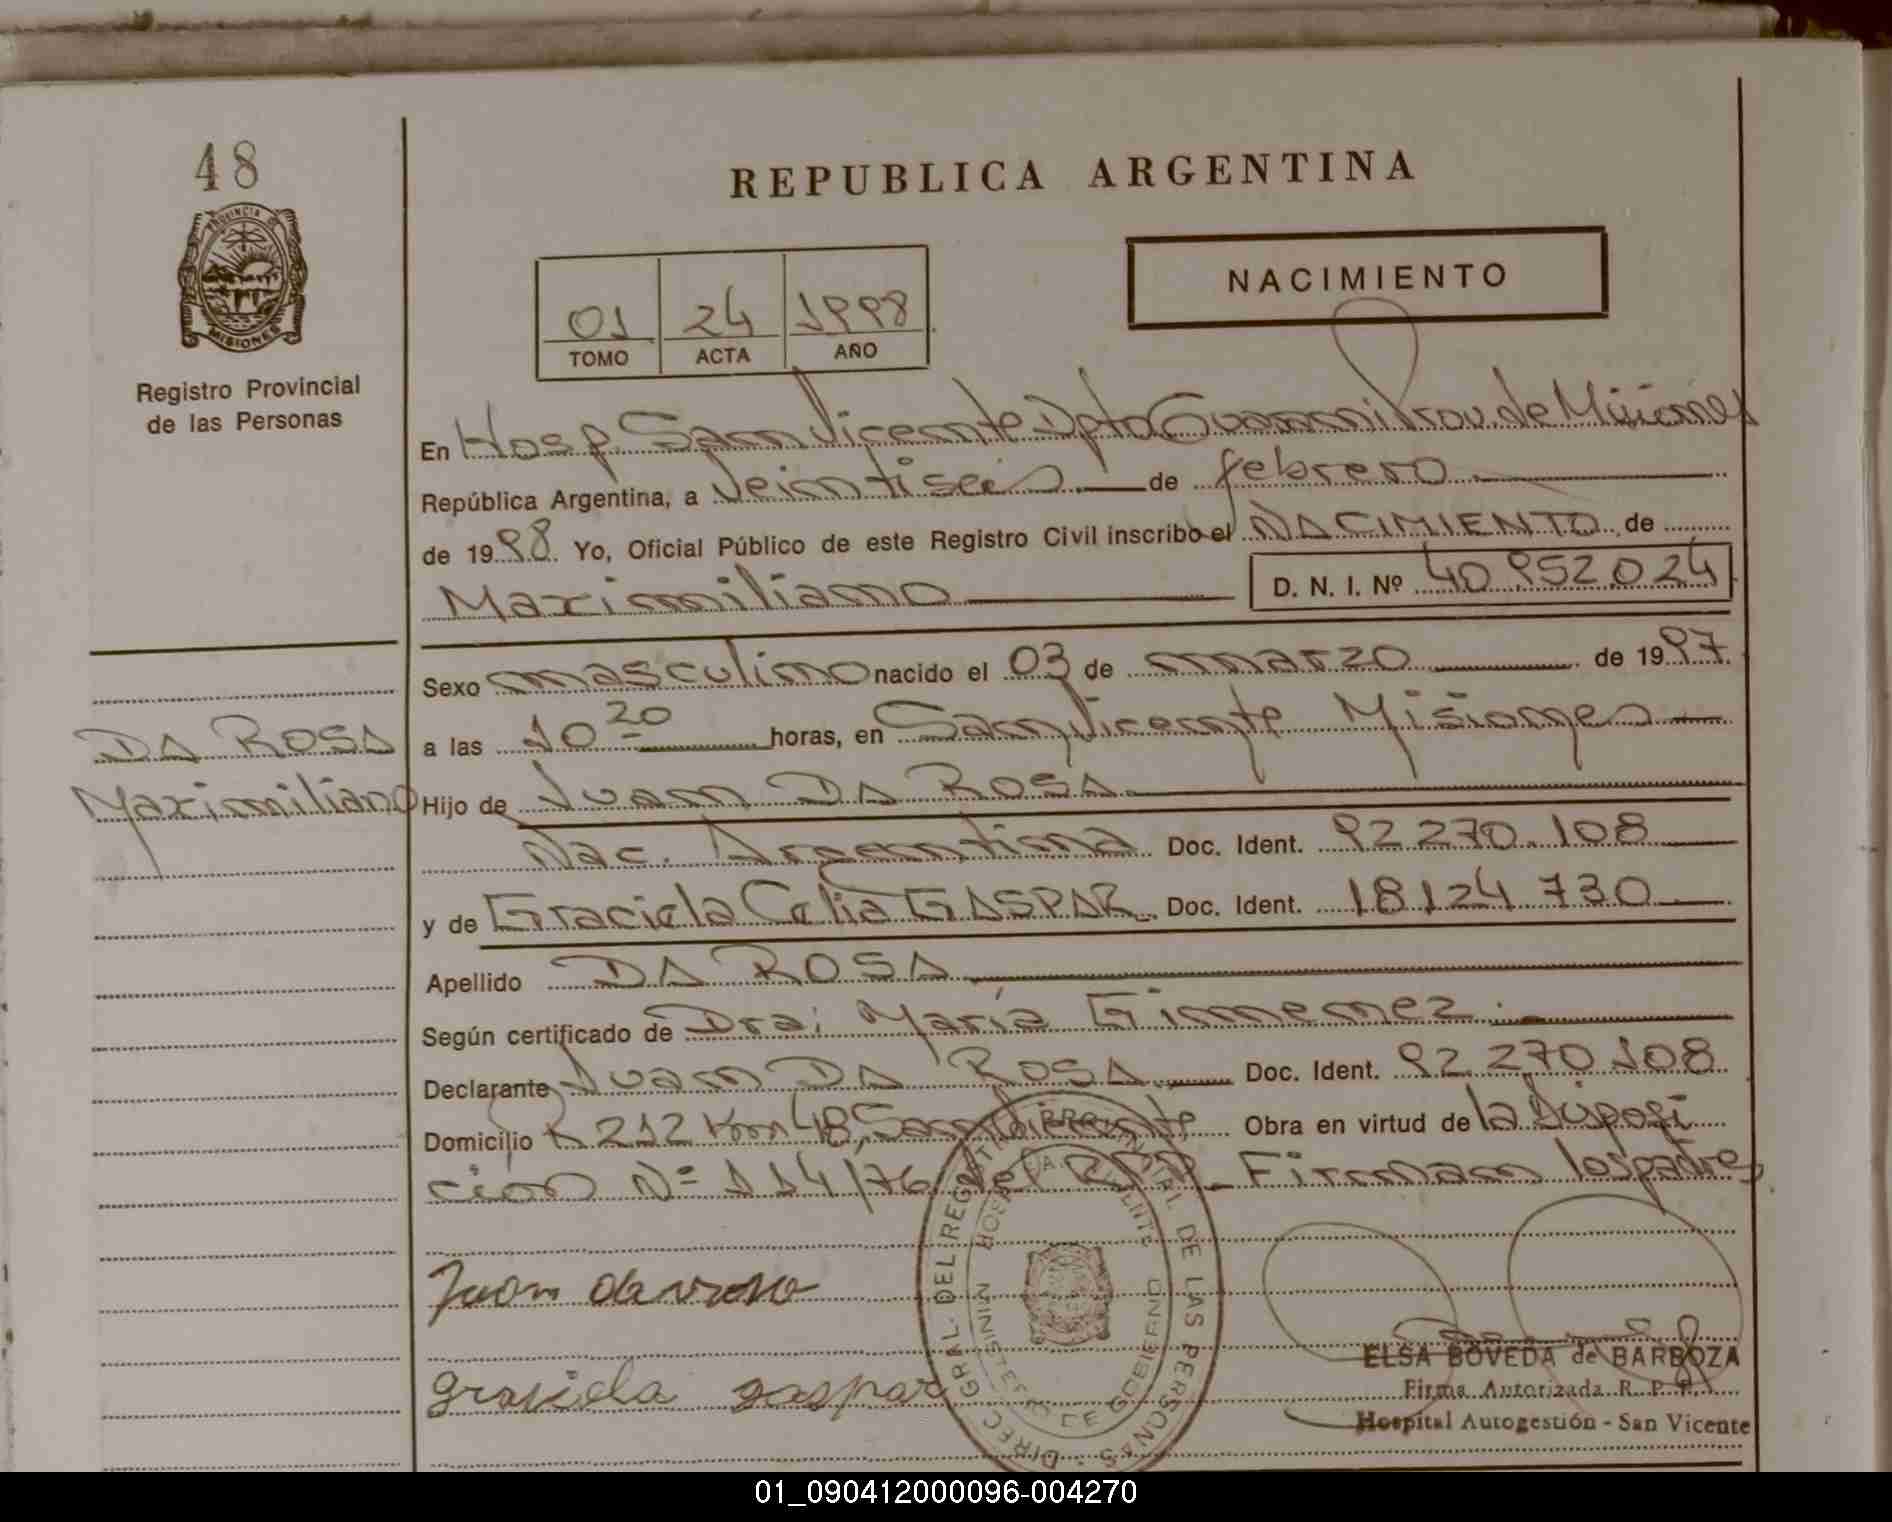 48
PROVINCIA DE
MISIONES
Registro Provincial
de las Personas
REPUBLICA ARGENTINA
NACIMIENTO
01 24 1998
TOMO ACTA AÑO
En Hosp. San Vicente Dpto Guarani Prov. de Misiones
República Argentina, a Veintiseis de febrero
de 1998 Yo, Oficial Público de este Registro Civil inscribo el NACIMIENTO de
Maximiliano D. N. I. Nº 40 952 024
Sexo masculino nacido el 03 de marzo de 1997
a las 10 20 horas, en San Vicente Misiones
DA ROSA
Maximiliano
Hijo de Juan DA ROSA
Nac. Argentina Doc. Ident. 92 270.108
y de Graciela Celia GASPAR Doc. Ident. 18124 730
Apellido DA ROSA
Según certificado de Dra: María Gimenez.
Declarante Juan DA ROSA Doc. Ident. 92 270 108
Domicilio R 212 Km 48, San Vicente Obra en virtud de la Disposi
cion Nº 114/76 del RPP. Firman los padres
Juan da rosa
graciela gaspar
DIREC. GRAL. DEL REGISTRO PROVINCIAL DE LAS PERSONAS
MINISTERIO DE GOBIERNO
ELSA BOVEDA de BARBOZA
Firma Autorizada R. P. P.
Hospital Autogestión - San Vicente
01_090412000096-004270